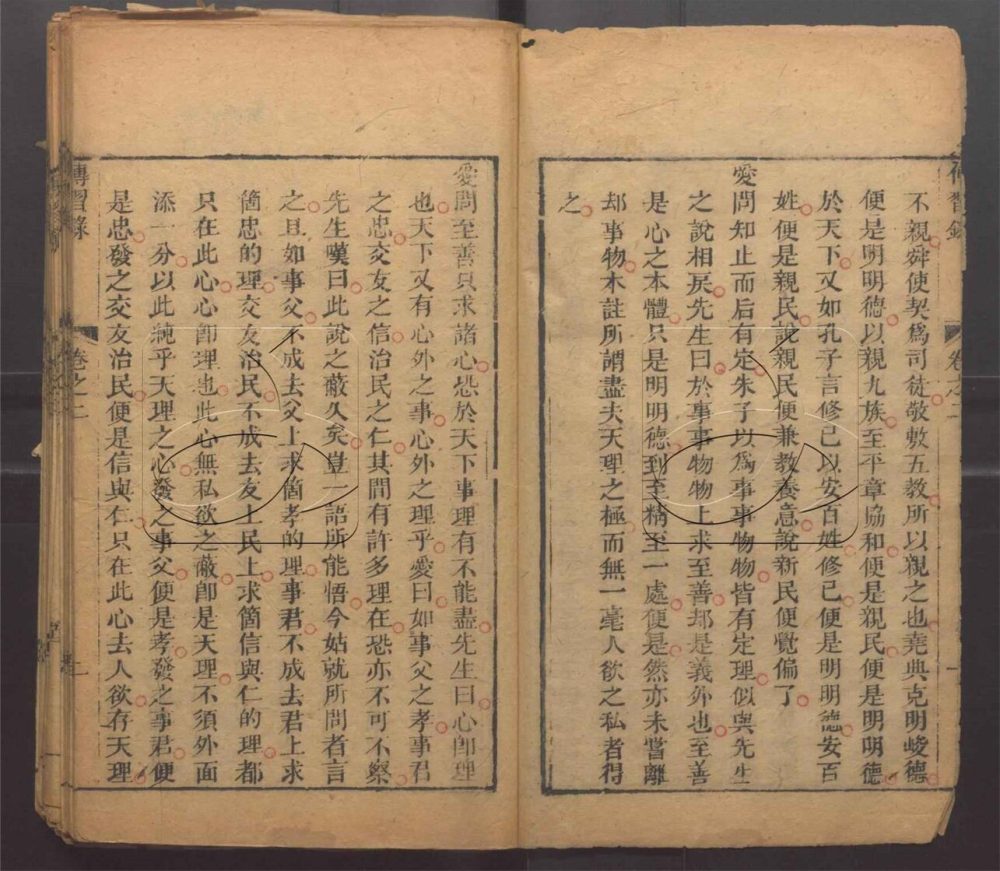 傳習錄
卷之一
不親舜使契爲司徒敬敷五教所以親之也堯典克明峻德
便是明明德以親九族至平章協和便是親民便是明明德
於天下又如孔子言修己以安百姓修己便是明明德安百
姓便是親民說親民便兼教養意說新民便覺偏了
愛問知止而后有定朱子以爲事事物物皆有定理似與先生
之說相戾先生曰於事事物物上求至善却是義外也至善
是心之本體只是明明德到至精至一處便是然亦未嘗離
却事物本註所謂盡夫天理之極而無一毫人欲之私者得
之
愛問至善只求諸心恐於天下事理有不能盡先生曰心卽理
也天下又有心外之事心外之理乎愛曰如事父之孝事君
之忠交友之信治民之仁其間有許多理在恐亦不可不察
先生嘆曰此說之蔽久矣豈一語所能悟今姑就所問者言
之且如事父不成去父上求箇孝的理事君不成去君上求
箇忠的理交友治民不成去友上民上求箇信與仁的理都
只在此心心卽理也此心無私欲之蔽卽是天理不須外面
添一分以此純乎天理之心發之事父便是孝發之事君便
是忠發之交友治民便是信與仁只在此心去人欲存天理
傳習錄
卷之一